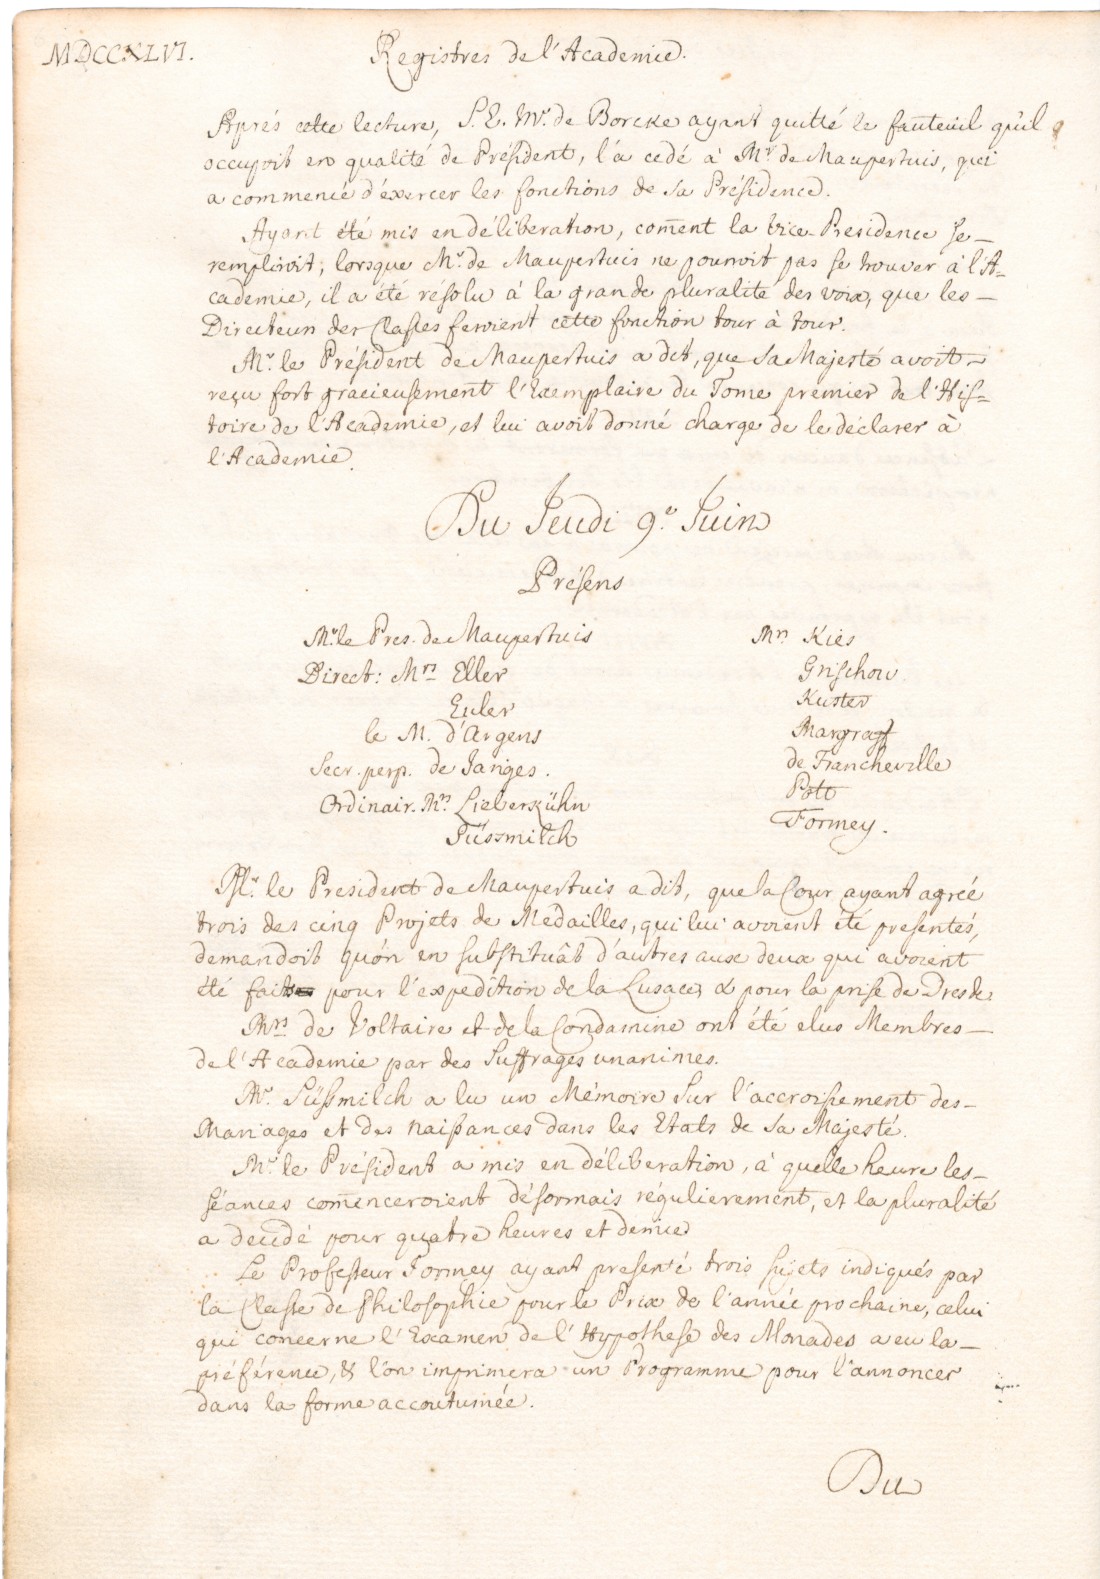 MDCCXLVI.
Registres de l'Academie.
Aprés cette lecture, S. E. Mr. de Borcke ayant quitté le fauteuil qu'il
occupoit en qualité de Président, l'a cedé à Mr. de Maupertuis, qui
a commencé d'éxercer les fonctions de sa Présidence.
Ayant été mis en déliberation, com̄ent la Vice-Presidence se
rempliroit, lorsque Mr. de Maupertuis ne pourroit pas se trouver à l'A-
cademie, il a été résolu à la grande pluralité des voix, que les
Directeurs des Classes feroient cette fonction tour à tour.
Mr. le Président de Maupertuis a dit, que Sa Majesté avoit
reçu fort gracieusement l'Exemplaire du Tome premier de l'His-
toire de l'Academie, et lui avoit donné charge de le déclarer à
l'Academie.
Du Jeudi 9e. Juin
Présens
Mr. le Pres. de Maupertuis
Direct: Mrs Eller
Euler
le M. d'Argens
Secr. perp. de Jariges.
Ordinair. Mrs. Lieberkühn
Süssmilch
Mrs Kies
Grischow
Kuster
Margraf
de Francheville
Pott
Formey.
Mr. le President de Maupertuis a dit, que la Cour ayant agréé
trois des cinq Projets de Médailles, qui lui avoient été presentés,
demandoit qu'on en substituât d'autres aux deux qui avoient
été faits pour l'expedition de la Lusace, & pour la prise de Dresde.
Mrs de Voltaire et de la Condamine ont été elus Membres
de l'Academie par des Suffrages unanimes.
Mr. Süssmilch a lu un Mémoire sur l'accroissement des
Mariages et des naissances dans les Etats de Sa Majesté.
Mr. le Président a mis en déliberation, à quelle heure les
séances com̄enceroient désormais régulierement, et la pluralité
a decidé pour quatre heures et demie.
Le Professeur Formey ayant presenté trois sujets indiqués par
la Classe de Philosophie pour le Prix de l'année prochaine, celui
qui concerne l'Examen de l'Hypothese des Monades a eu la
préférence, & l'on imprimera un Programme pour l'annoncer
dans la forme accoutumée.
Du